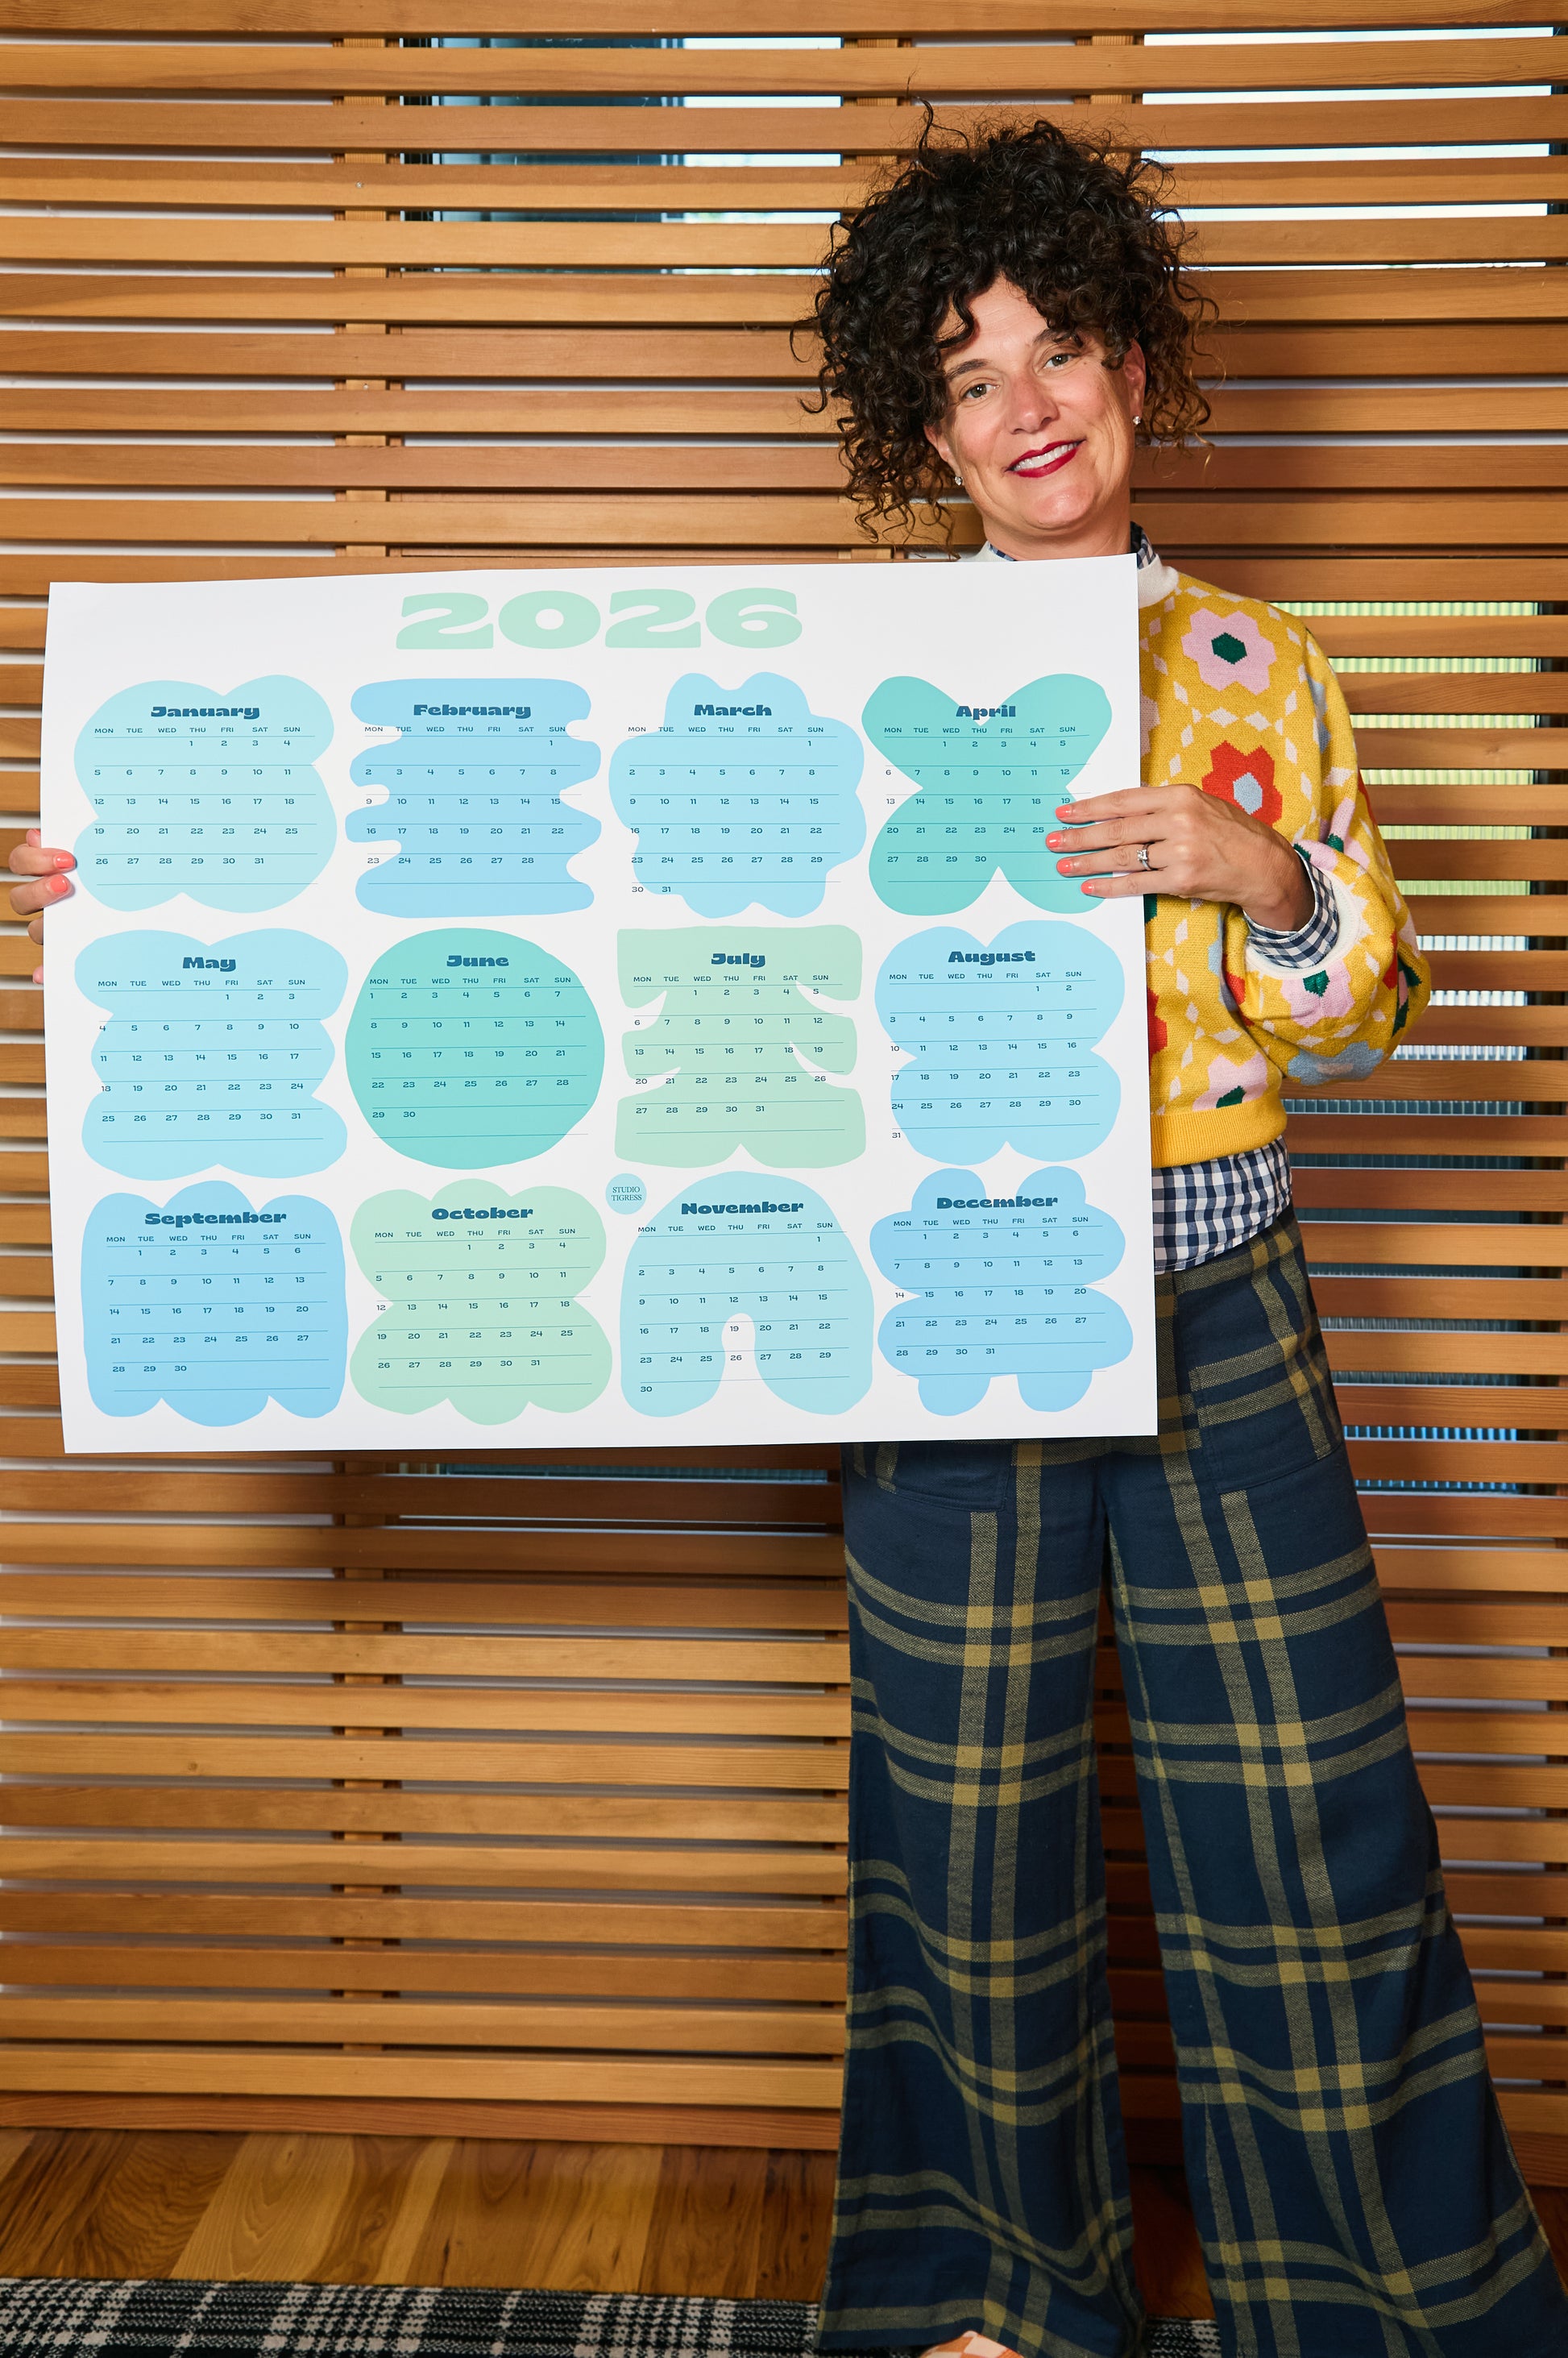 2026
January
MON TUE WED THU FRI SAT SUN
1 2 3 4
5 6 7 8 9 10 11
12 13 14 15 16 17 18
19 20 21 22 23 24 25
26 27 28 29 30 31
February
MON TUE WED THU FRI SAT SUN
1
2 3 4 5 6 7 8
9 10 11 12 13 14 15
16 17 18 19 20 21 22
23 24 25 26 27 28
March
MON TUE WED THU FRI SAT SUN
1
2 3 4 5 6 7 8
9 10 11 12 13 14 15
16 17 18 19 20 21 22
23 24 25 26 27 28 29
30 31
April
MON TUE WED THU FRI SAT SUN
1 2 3 4 5
6 7 8 9 10 11 12
13 14 15 16 17 18 19
20 21 22 23 24 25
27 28 29 30
May
MON TUE WED THU FRI SAT SUN
1 2 3
4 5 6 7 8 9 10
11 12 13 14 15 16 17
18 19 20 21 22 23 24
25 26 27 28 29 30 31
June
MON TUE WED THU FRI SAT SUN
1 2 3 4 5 6 7
8 9 10 11 12 13 14
15 16 17 18 19 20 21
22 23 24 25 26 27 28
29 30
July
MON TUE WED THU FRI SAT SUN
1 2 3 4 5
6 7 8 9 10 11 12
13 14 15 16 17 18 19
20 21 22 23 24 25 26
27 28 29 30 31
August
MON TUE WED THU FRI SAT SUN
1 2
3 4 5 6 7 8 9
10 11 12 13 14 15 16
17 18 19 20 21 22 23
24 25 26 27 28 29 30
31
September
MON TUE WED THU FRI SAT SUN
1 2 3 4 5 6
7 8 9 10 11 12 13
14 15 16 17 18 19 20
21 22 23 24 25 26 27
28 29 30
October
MON TUE WED THU FRI SAT SUN
1 2 3 4
5 6 7 8 9 10 11
12 13 14 15 16 17 18
19 20 21 22 23 24 25
26 27 28 29 30 31
STUDIO
TIGRESS
November
MON TUE WED THU FRI SAT SUN
1
2 3 4 5 6 7 8
9 10 11 12 13 14 15
16 17 18 19 20 21 22
23 24 25 26 27 28 29
30
December
MON TUE WED THU FRI SAT SUN
1 2 3 4 5 6
7 8 9 10 11 12 13
14 15 16 17 18 19 20
21 22 23 24 25 26 27
28 29 30 31